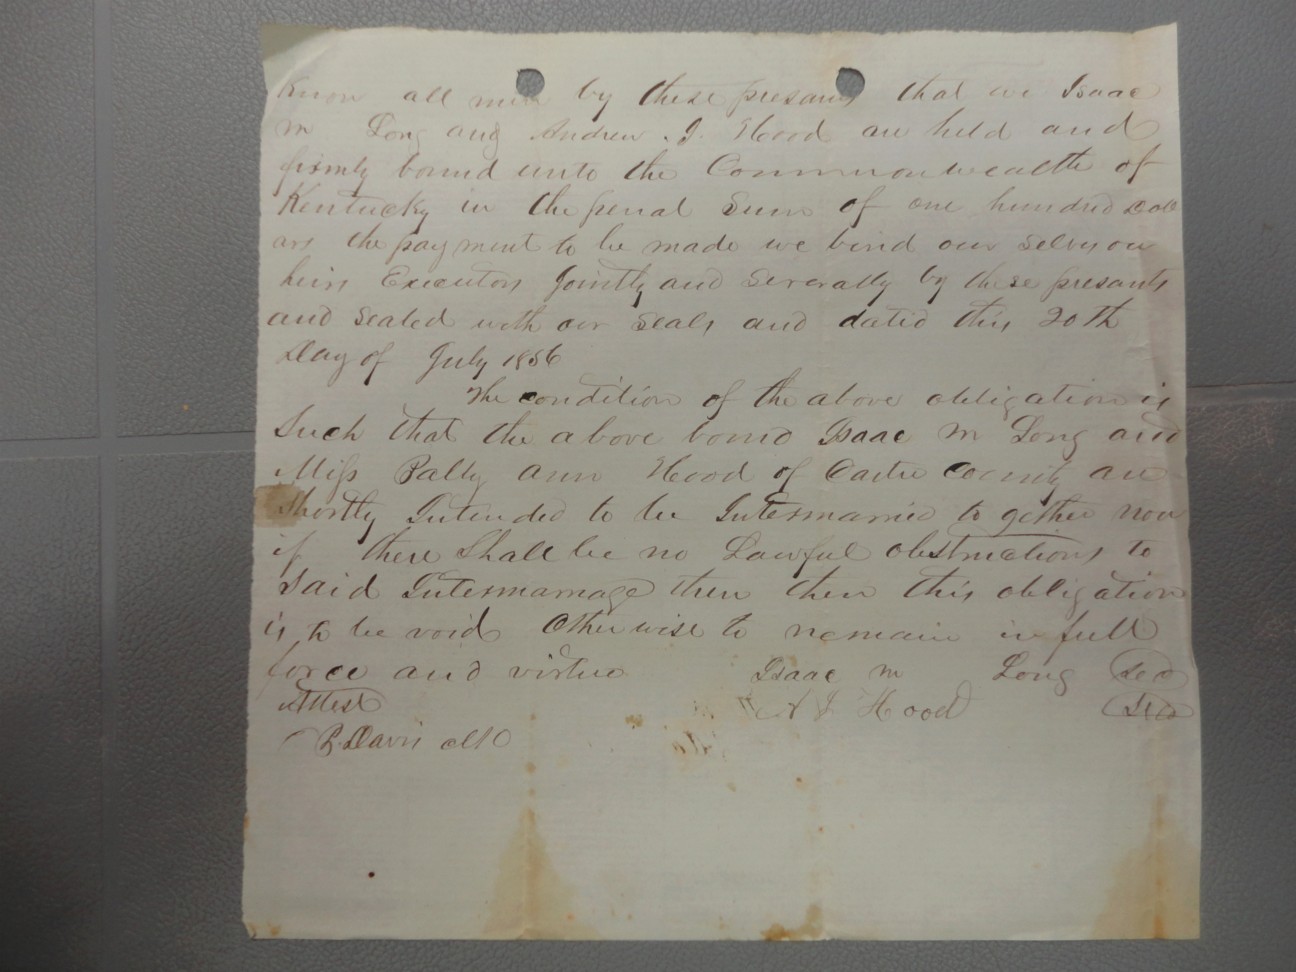 Know all men by these presants that we Isaac
M Long and Andrew . J. Hood are held and
firmly bound unto the Commonwealth of
Kentucky in the penal Sum of one hundred Doll
ars the payment to be made we bind our selves our
heirs Executors Jointly and Severally by these presants
and Sealed with our Seals and dated this 20th
Day of July 1856
The condition of the above obligation is
Such that the above bound Isaac M Long and
Miss Patty ann Hood of Carter County are
Shortly Intended to be Intermarried to gether now
if there Shall be no Lawful obstructions to
Said Intermarriage then then this obligation
is to be void Otherwise to remain in full
force and virtue Isaac M Long Sea
Attest A J Hood Sea
R. Davis